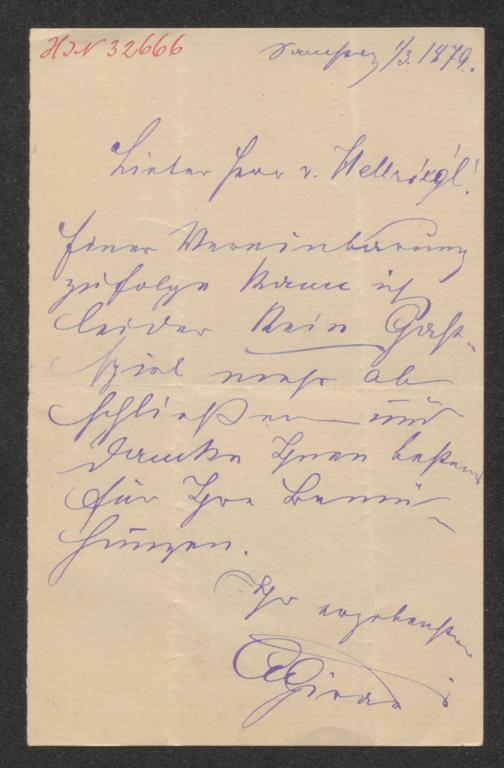 HIN 32666
Samstag 1/3. 1879.
Lieber Herr v. Hellriegl!
Einer Vereinbarung
zufolge kann ich
leider kein Gast-
spiel mehr ab
schließen und
danke Ihnen bestens
für Ihre Bemü-
hungen.
Ihr ergebenster
AGirardi